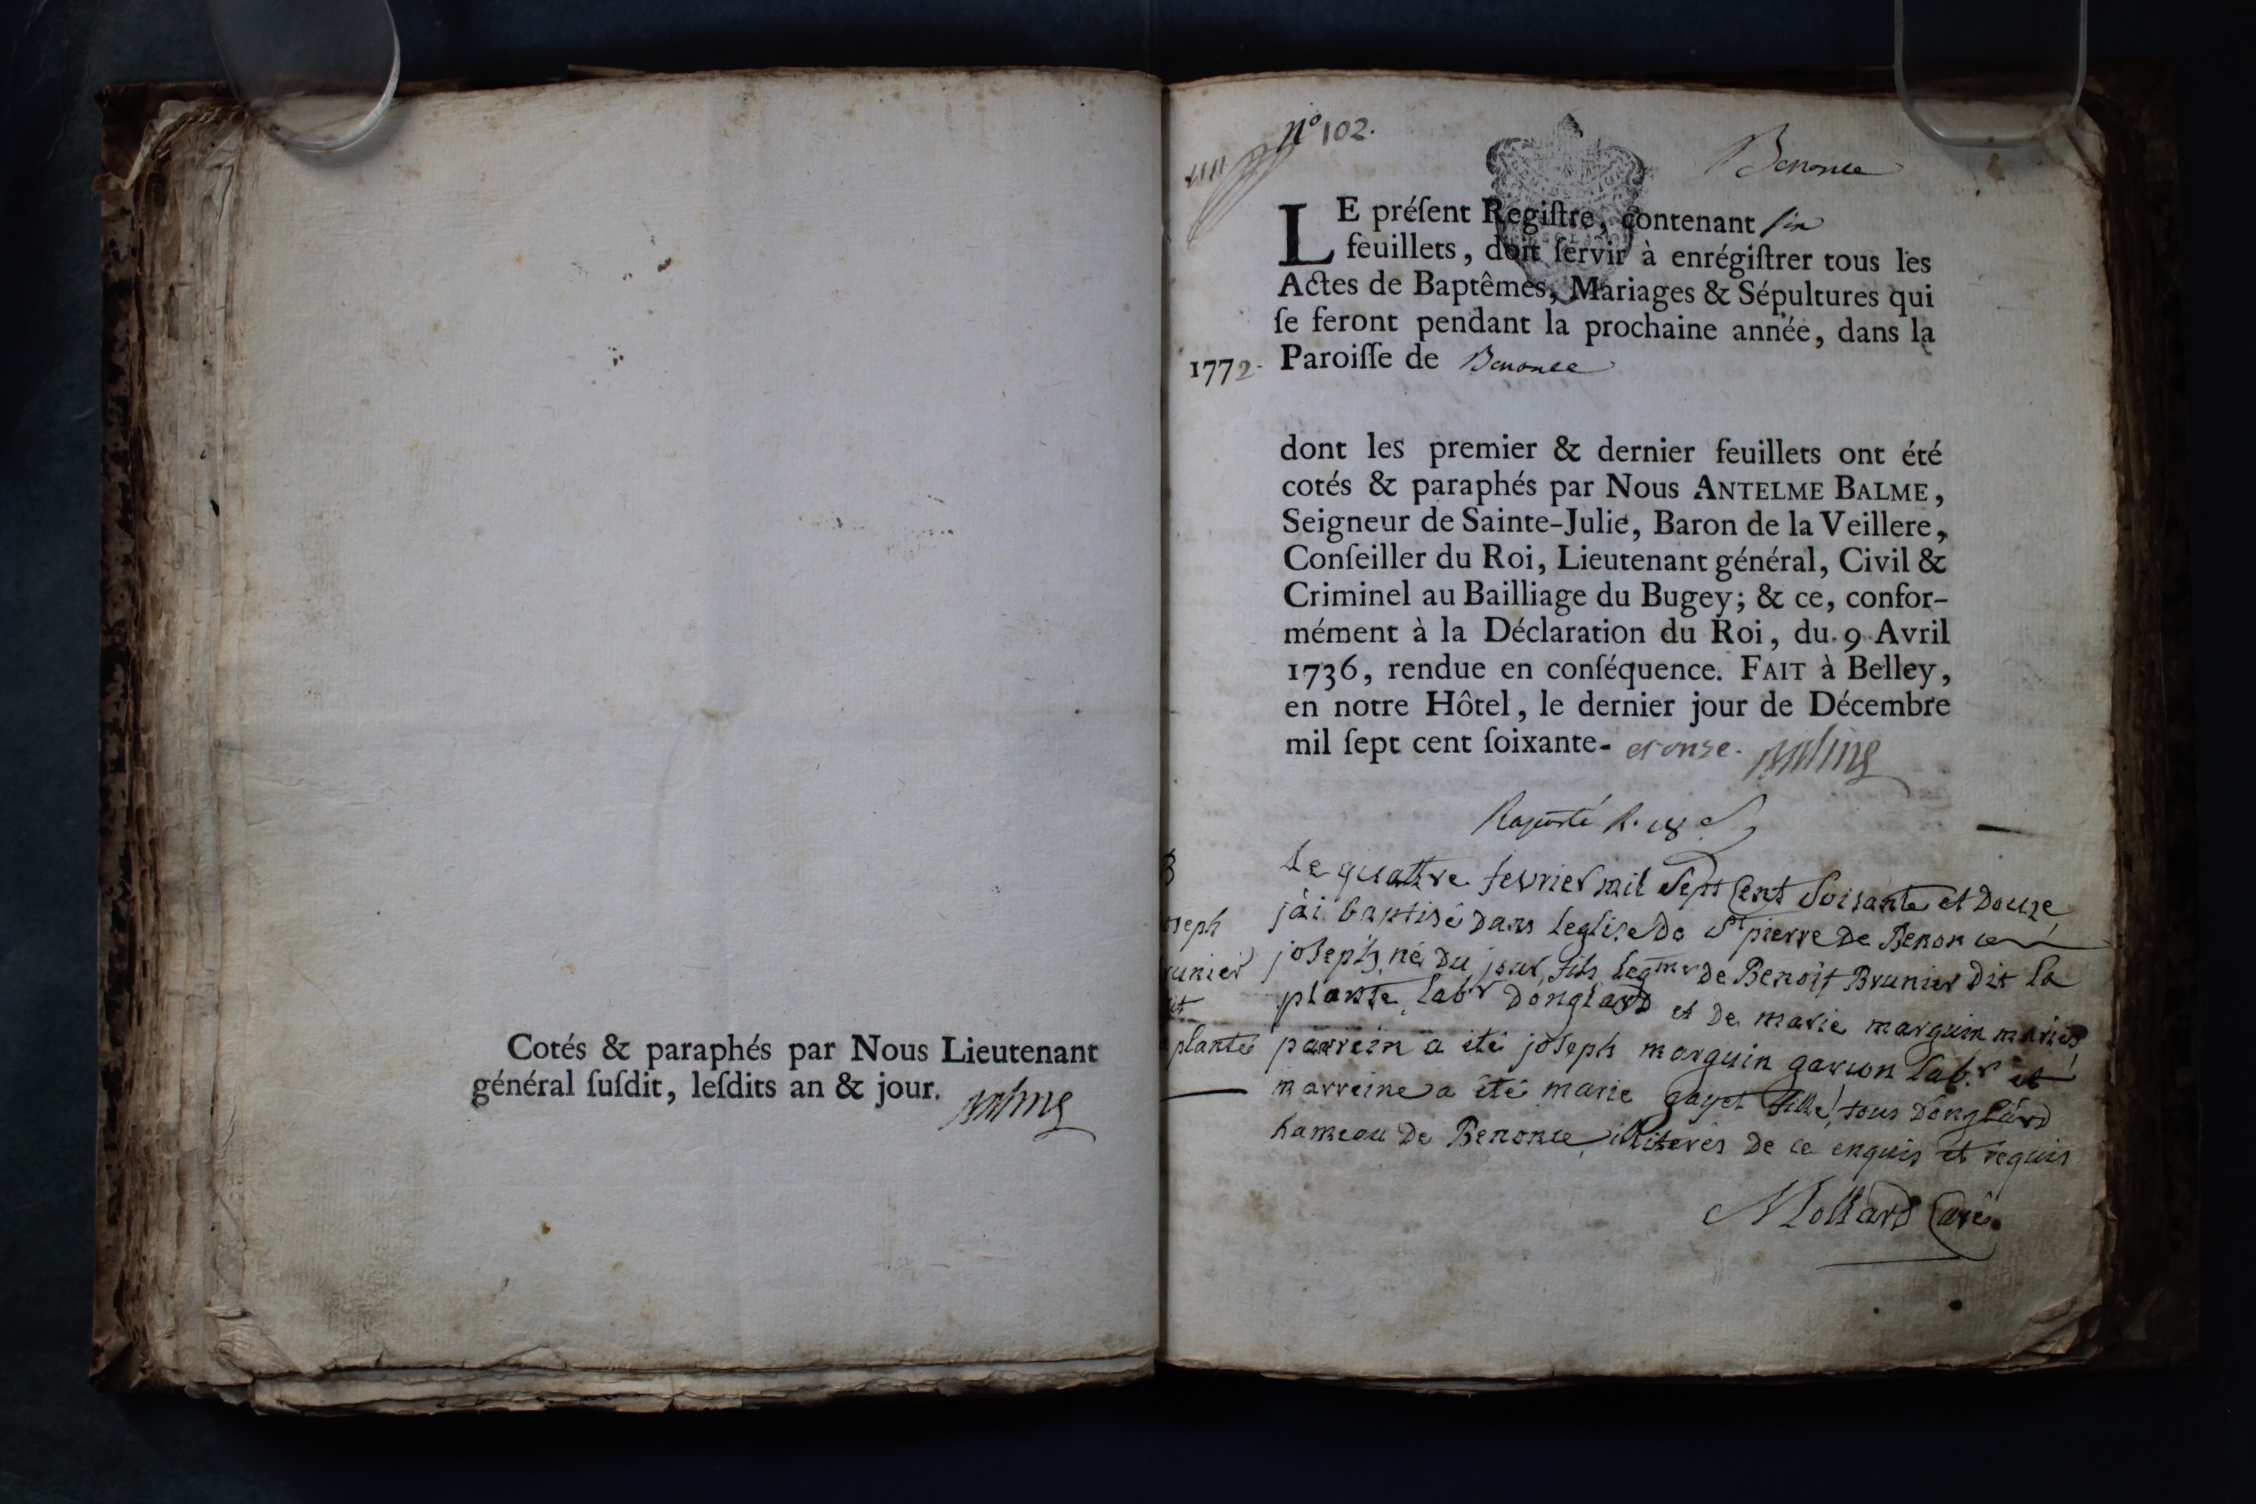 Cotés & paraphés par Nous Lieutenant
général ſuſdit, leſdits an & jour.
n° 102.
Benonce
LE préſent Regiſtre, contenant six
feuillets, doit ſervir à enrégiſtrer tous les
Actes de Baptêmes, Mariages & Sépultures qui
ſe feront pendant la prochaine année, dans la
1772. Paroiſſe de Benonce
dont les premier & dernier feuillets ont été
cotés & paraphés par Nous ANTELME BALME,
Seigneur de Sainte-Julie, Baron de la Veillere,
Conſeiller du Roi, Lieutenant général, Civil &
Criminel au Bailliage du Bugey; & ce, confor-
mément à la Déclaration du Roi, du 9 Avril
1736, rendue en conſéquence. FAIT à Belley,
en notre Hôtel, le dernier jour de Décembre
mil ſept cent ſoixante- et onze.
B
oseph
runier
plante
Le quattre fevrier mil sept cent soisante et douze
j'ai baptisé dans leglise de St pierre de Benonce
joseph, né du jour, fils legme de Benoit Brunier dit la
plante labr d'onglard et de marie marguin mariés
parrein a été joseph marguin garcon labr et
marreine a été marie gayet fille, tous d'onglard
hameau de Benonce, illiterés de ce enquis et requis
Mollard Curé.